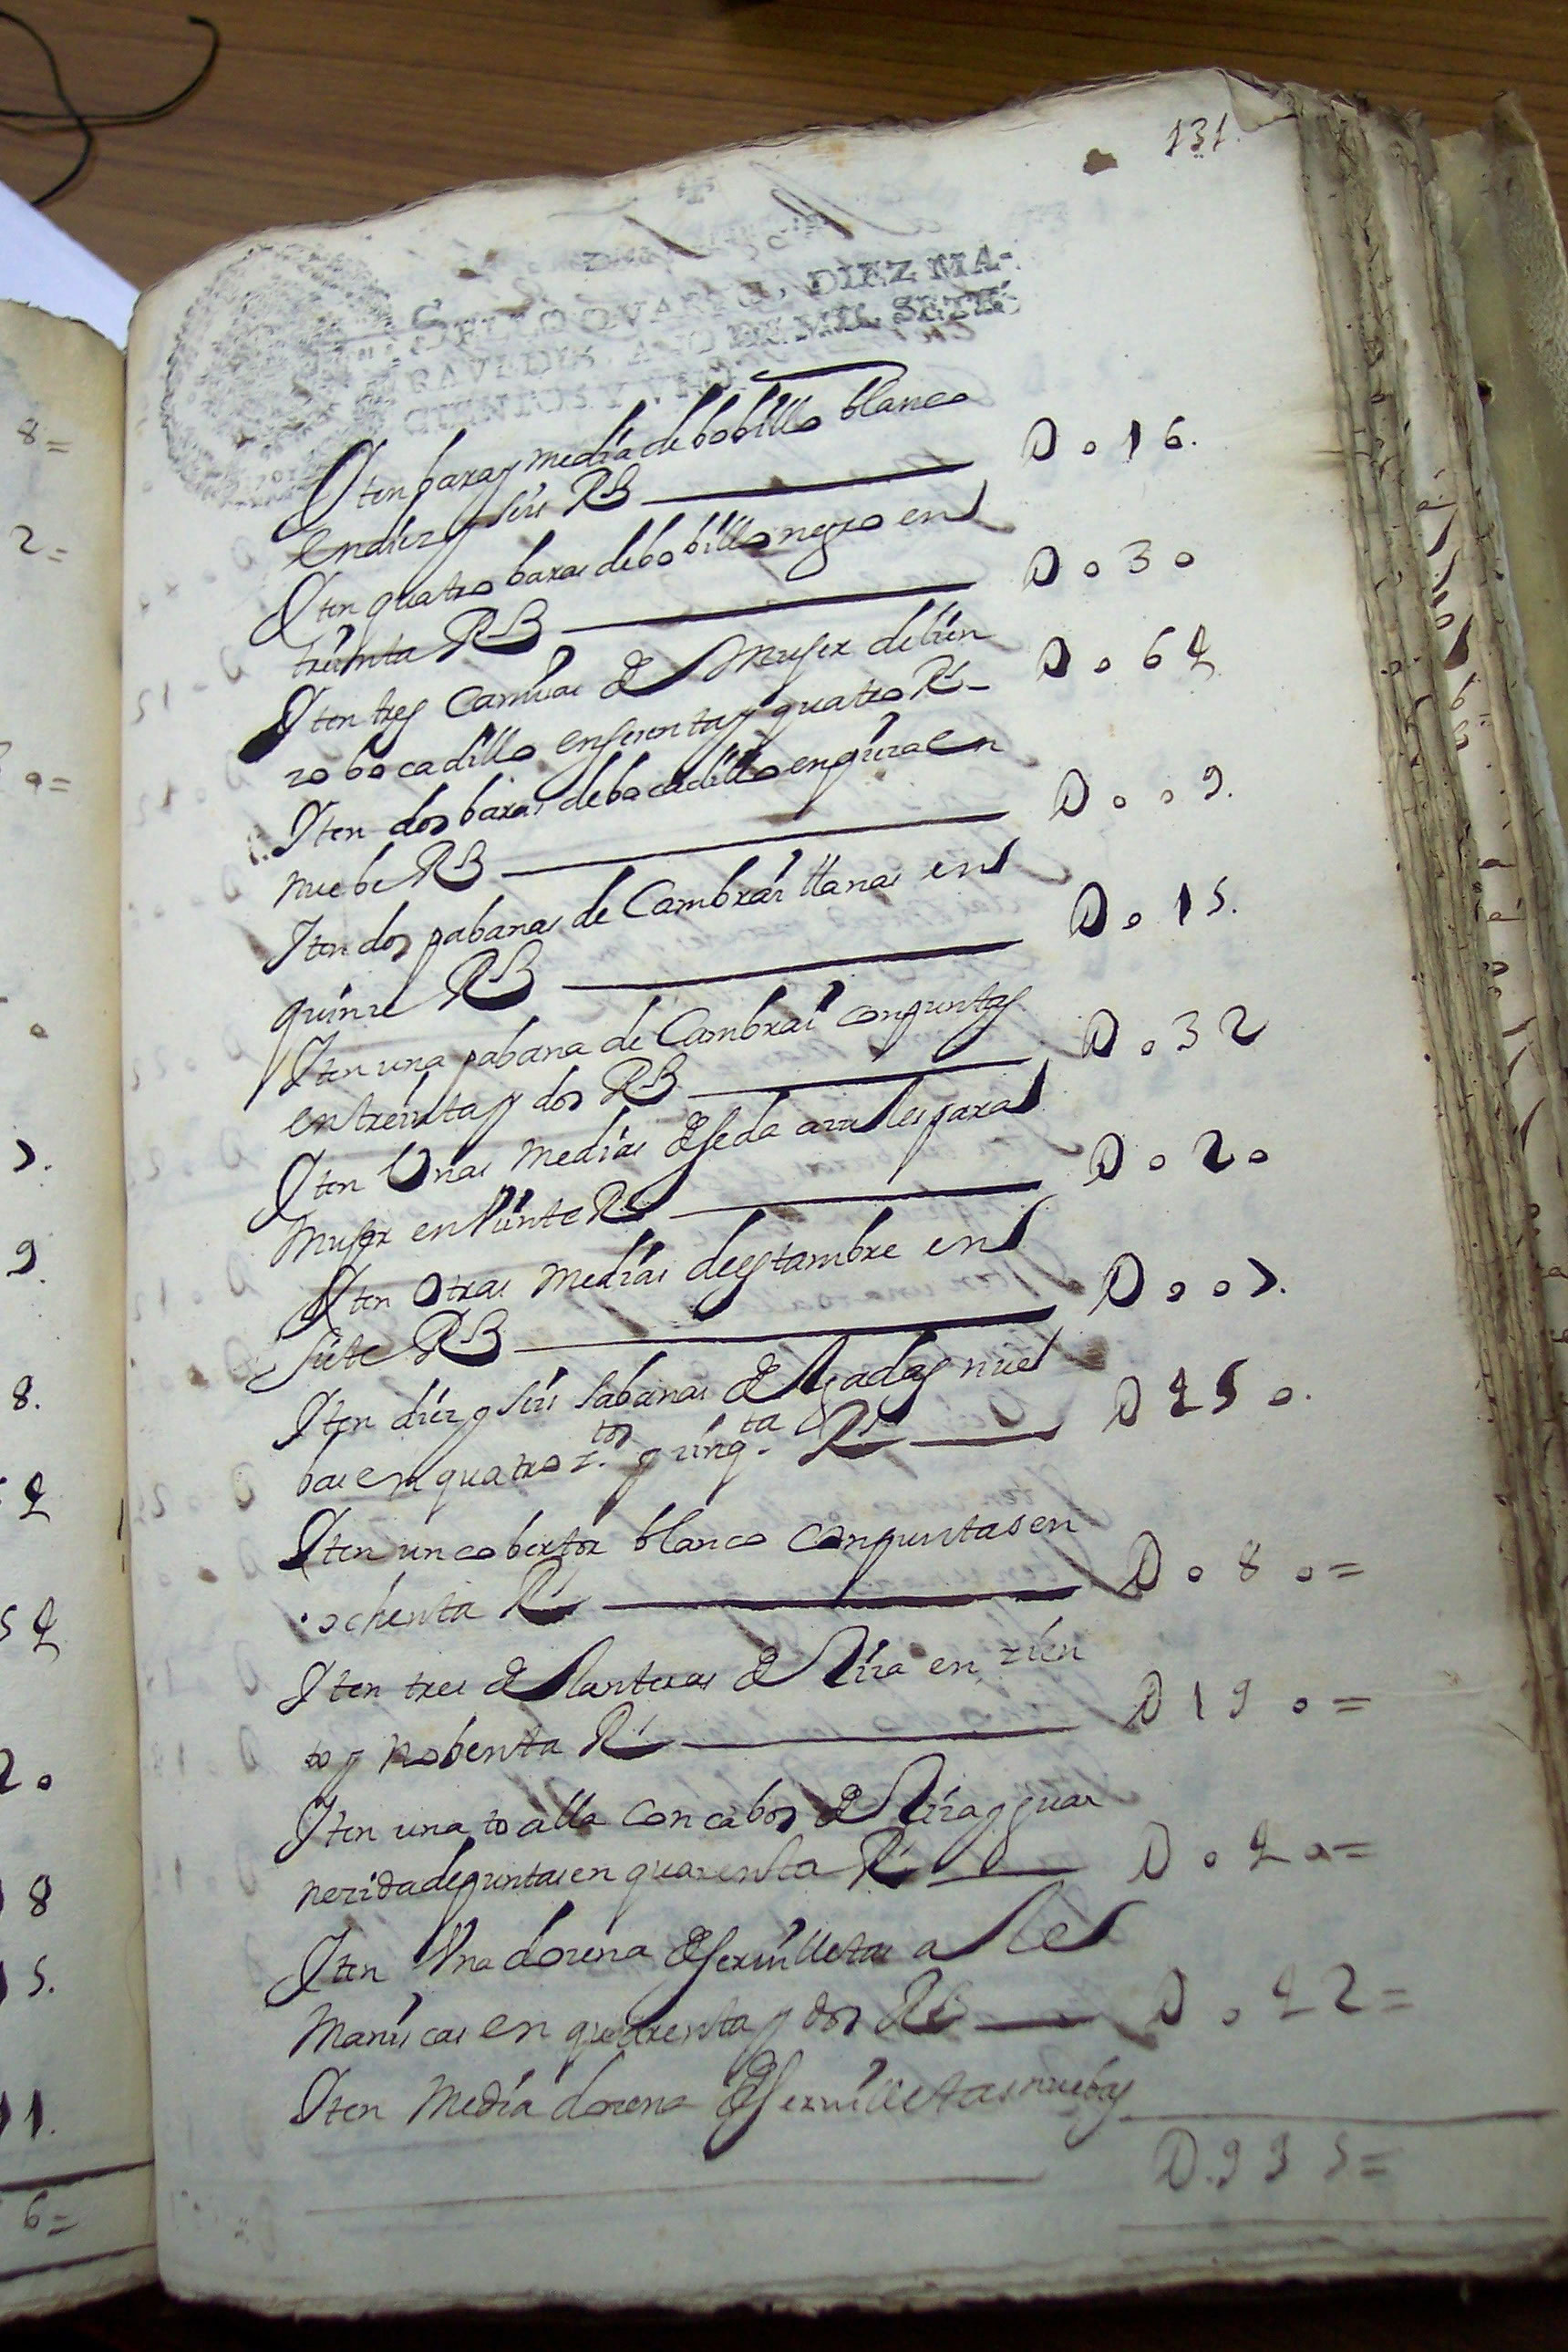 131.
SELLO QVARTO, DIEZ MA-
RAVEDIS, AÑO DE MIL SETE-
CIENTOS Y VNO.
Yten bara y media de bobillo blanco
en diez y seis Rs D o 16.
Yten quatro baras de bobillo negro en
treinta Rs D o 3 o
Yten tres Camisas de Muger de lien
zo bocadillo en sesenta y quatro Rs D o 6 4
Yten dos baras de bocadillo en pieza en
nuebe Rs D o o 9.
Yten dos pabanas de Cambrai llanas en
quinze Rs D o 15.
Yten una pabana de Cambrai con puntas
en treinta y dos Rs D o 3 2
Yten Unas medias de seda azules para
Muger en Veinte Rs D o 2 o
Yten Otras medias de estambre en
siete Rs D o o 7.
Yten diez y seis sabanas delgadas nue
bas en quatro z.tos y zinq.ta Rs D 4 5 o.
Yten un cobertor blanco con puntas en
ochenta Rs D o 8 o =
Yten tres delanteras de Rira en zien
to y nobenta Rs D 1 9 o =
Yten una toalla con cabos de Rira y guar
nezida de puntas en quarenta Rs D o 4 o =
Yten Vna dozena de serbilletas ale
maniscas en quarenta y dos Rs D o 4 2 =
Yten Media dozena de serbilletas nuebas
D. 9 9 5 =
8 =
2 =
o =
o
7.
9.
8.
4
5 4
2 o
8
5.
1.
6 =